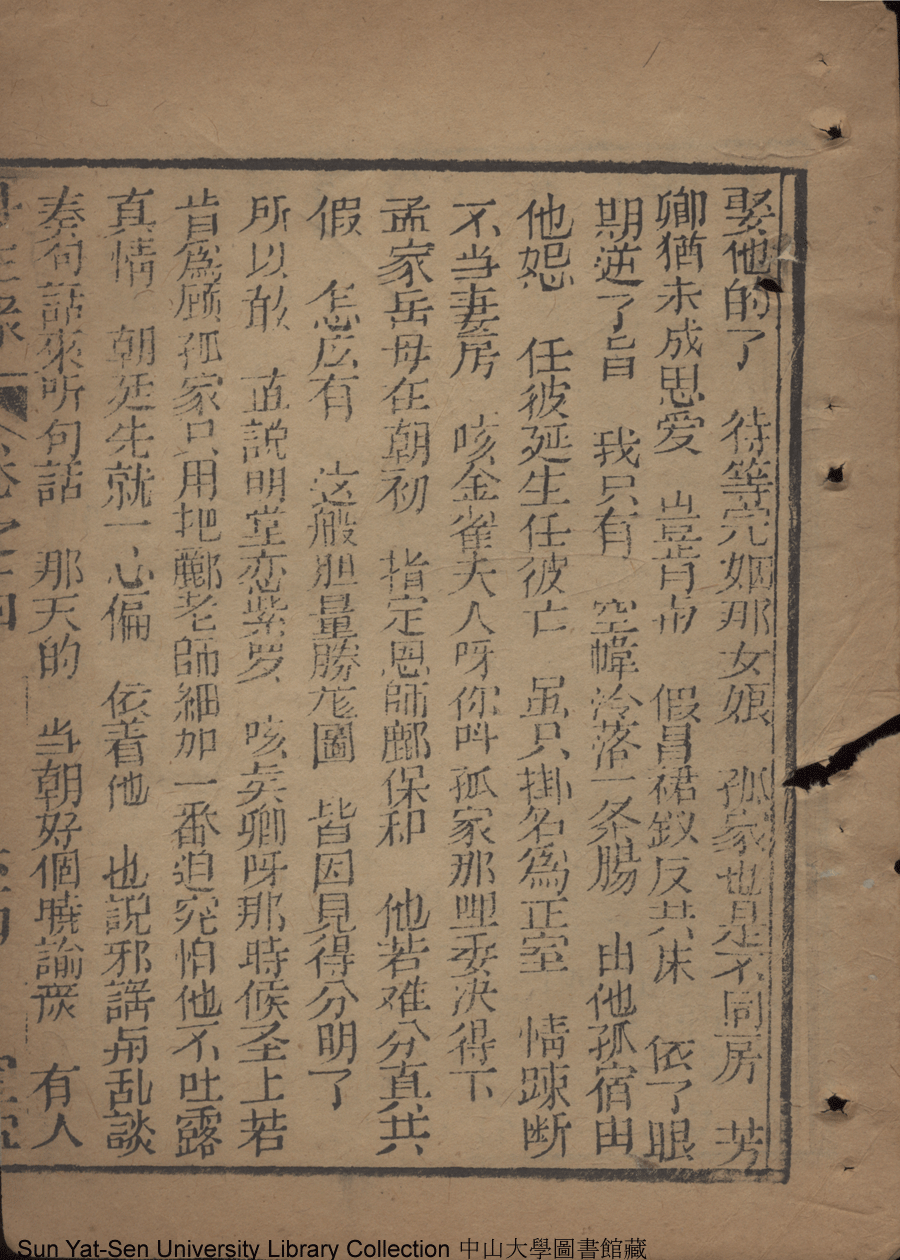 娶他的了　待等完姻那女娘　孤家也是不同房　芳
卿猶未成恩爱　豈肯甫　假冒裙釵反共床　依了眼
期逆了旨　我只有　空幃冷落一条腸　由他孤宿由
他怨　任彼延生任彼亡　虽只掛名為正室　情踈断
不当妻房　咳金雀夫人呀你叫孤家那里委决得下
孟家岳母在朝初　指定恩師酈保和　他若难分真共
假　怎広有　这般胆量勝花圖　皆因見得分明了
所以敢　直説明堂恋紫罗　咳矣卿呀那時候圣上若
肯為顾孤家只用把酈老師細加一番迫究怕他不吐露
真情　朝廷先就一心偏　依着他　也説邪謡乱談
奏句話來听句話　那天的　当朝好個曉諭　有人
卷之
Sun Yat-Sen University Library Collection 中山大學圖書館藏